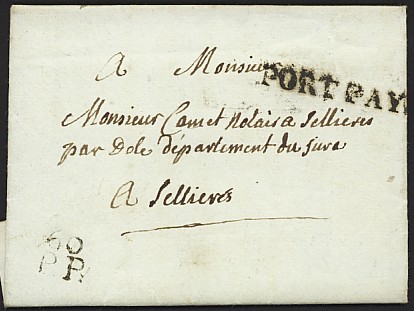 A Monsieur
PORT PAYÉ
Monsieur Comet Notaire a Sellieres
par Dole département du jura
A Sellieres
60
P.P.